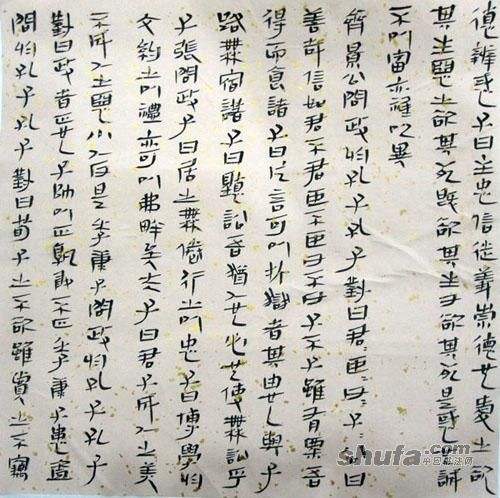 德辨惑子曰主忠信徙義崇德也愛之欲
其生惡之欲其死既欲其生又欲其死是惑也誠
不以富亦祗以異
齊景公問政於孔子孔子對曰君=臣=父=子=公曰
善哉信如君不君臣不臣父不父子不子雖有粟吾
得而食諸子曰片言可以折獄者其由也與子
路無宿諾子曰聽訟吾猶人也必也使無訟乎
子張問政子曰居之無倦行之以忠子曰博學於
文約之以禮亦可以弗畔矣夫子曰君子成人之美
不成人之惡小人反是季康子問政於孔子孔子
對曰政者正也子帥以正孰敢不正季康子患盜
問於孔子孔子對曰苟子之不欲雖賞之不竊
shufa.com
中国书法网